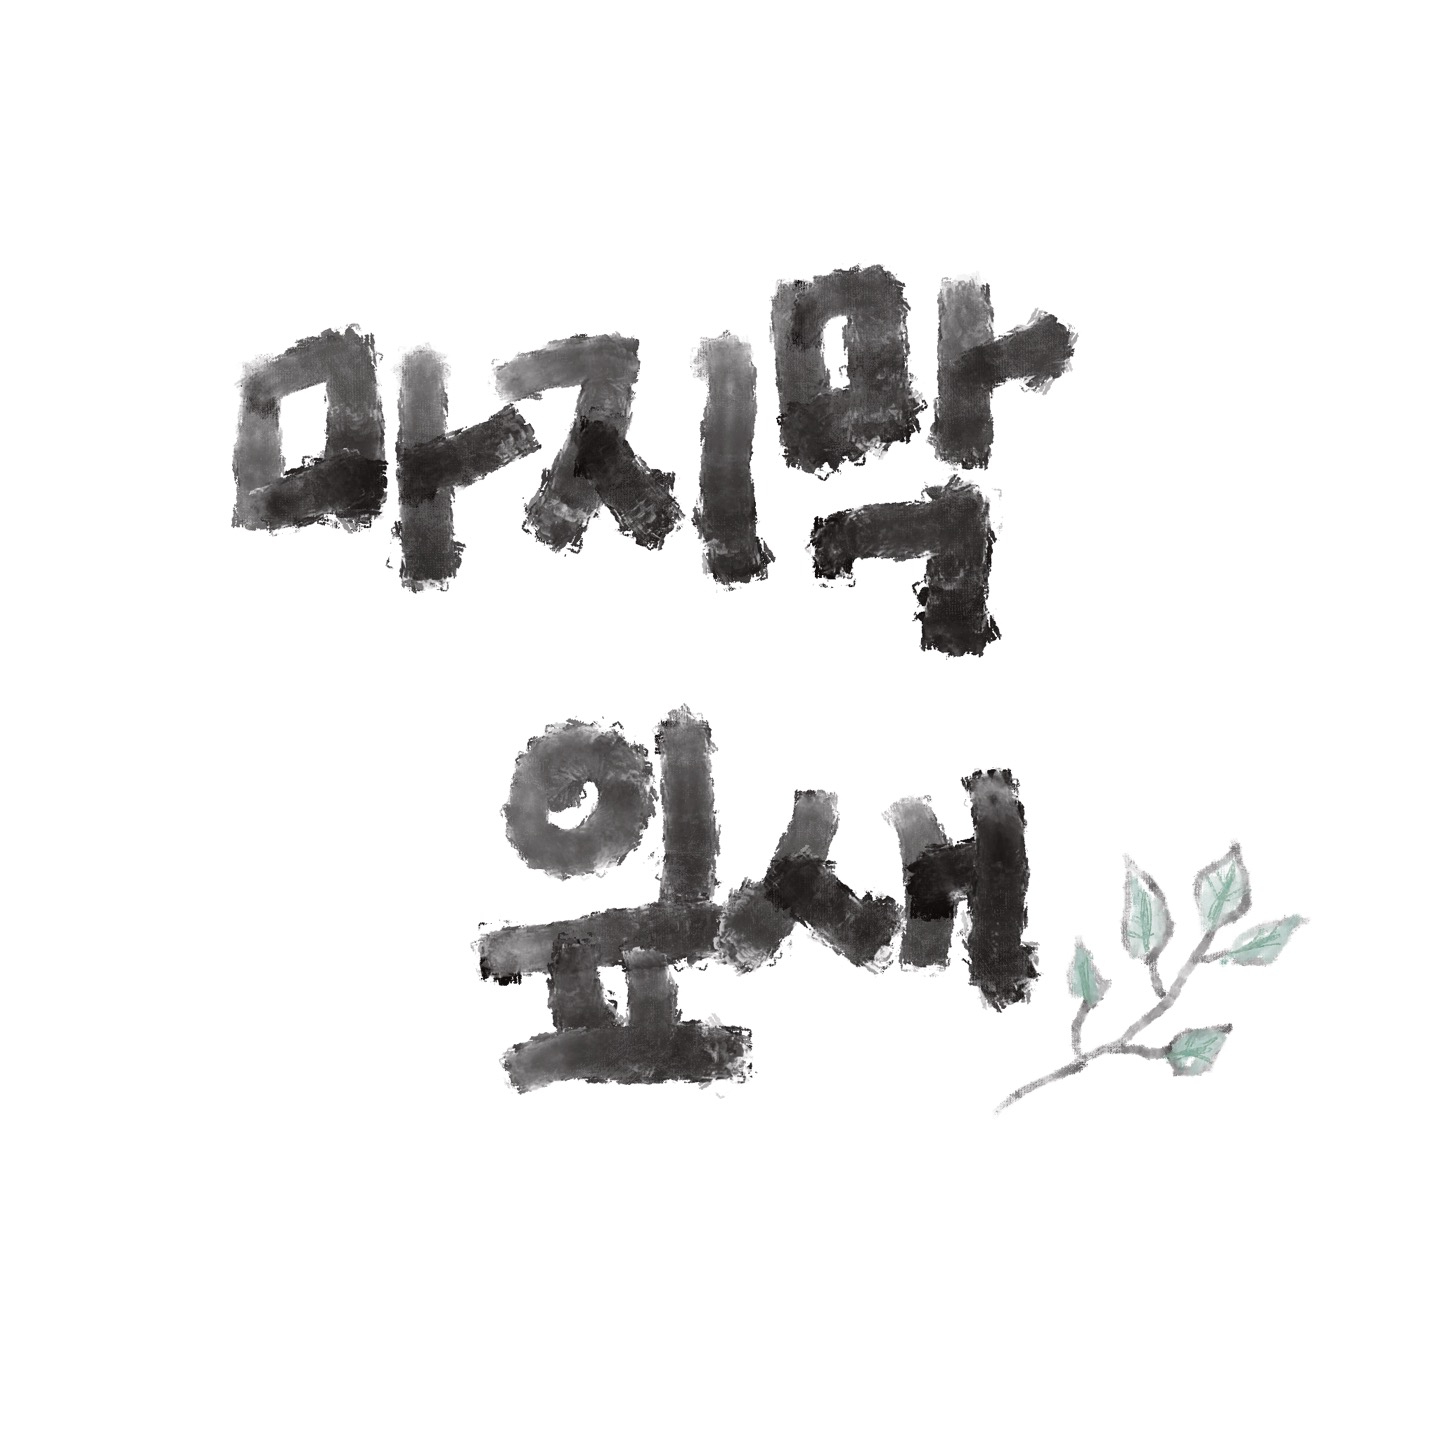 마지막
잎새